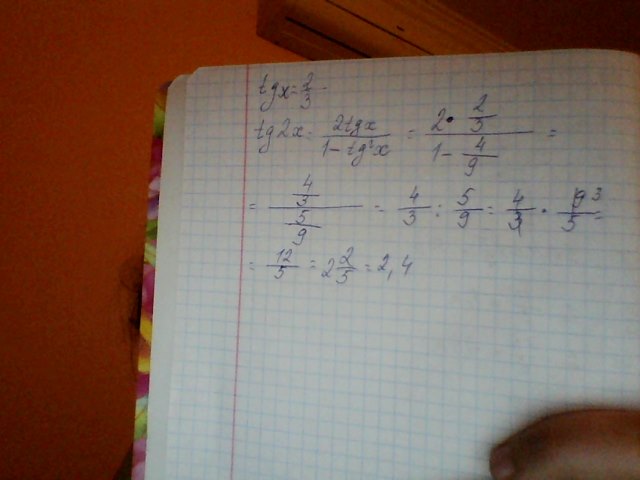 tgx = 2/3
tg2x = 2tgx / (1 - tg²x) = (2 · 2/3) / (1 - 4/9) =
= (4/3) / (5/9) = 4/3 : 5/9 = 4/3 · 9/5 ³ =
= 12/5 = 2 2/5 = 2,4